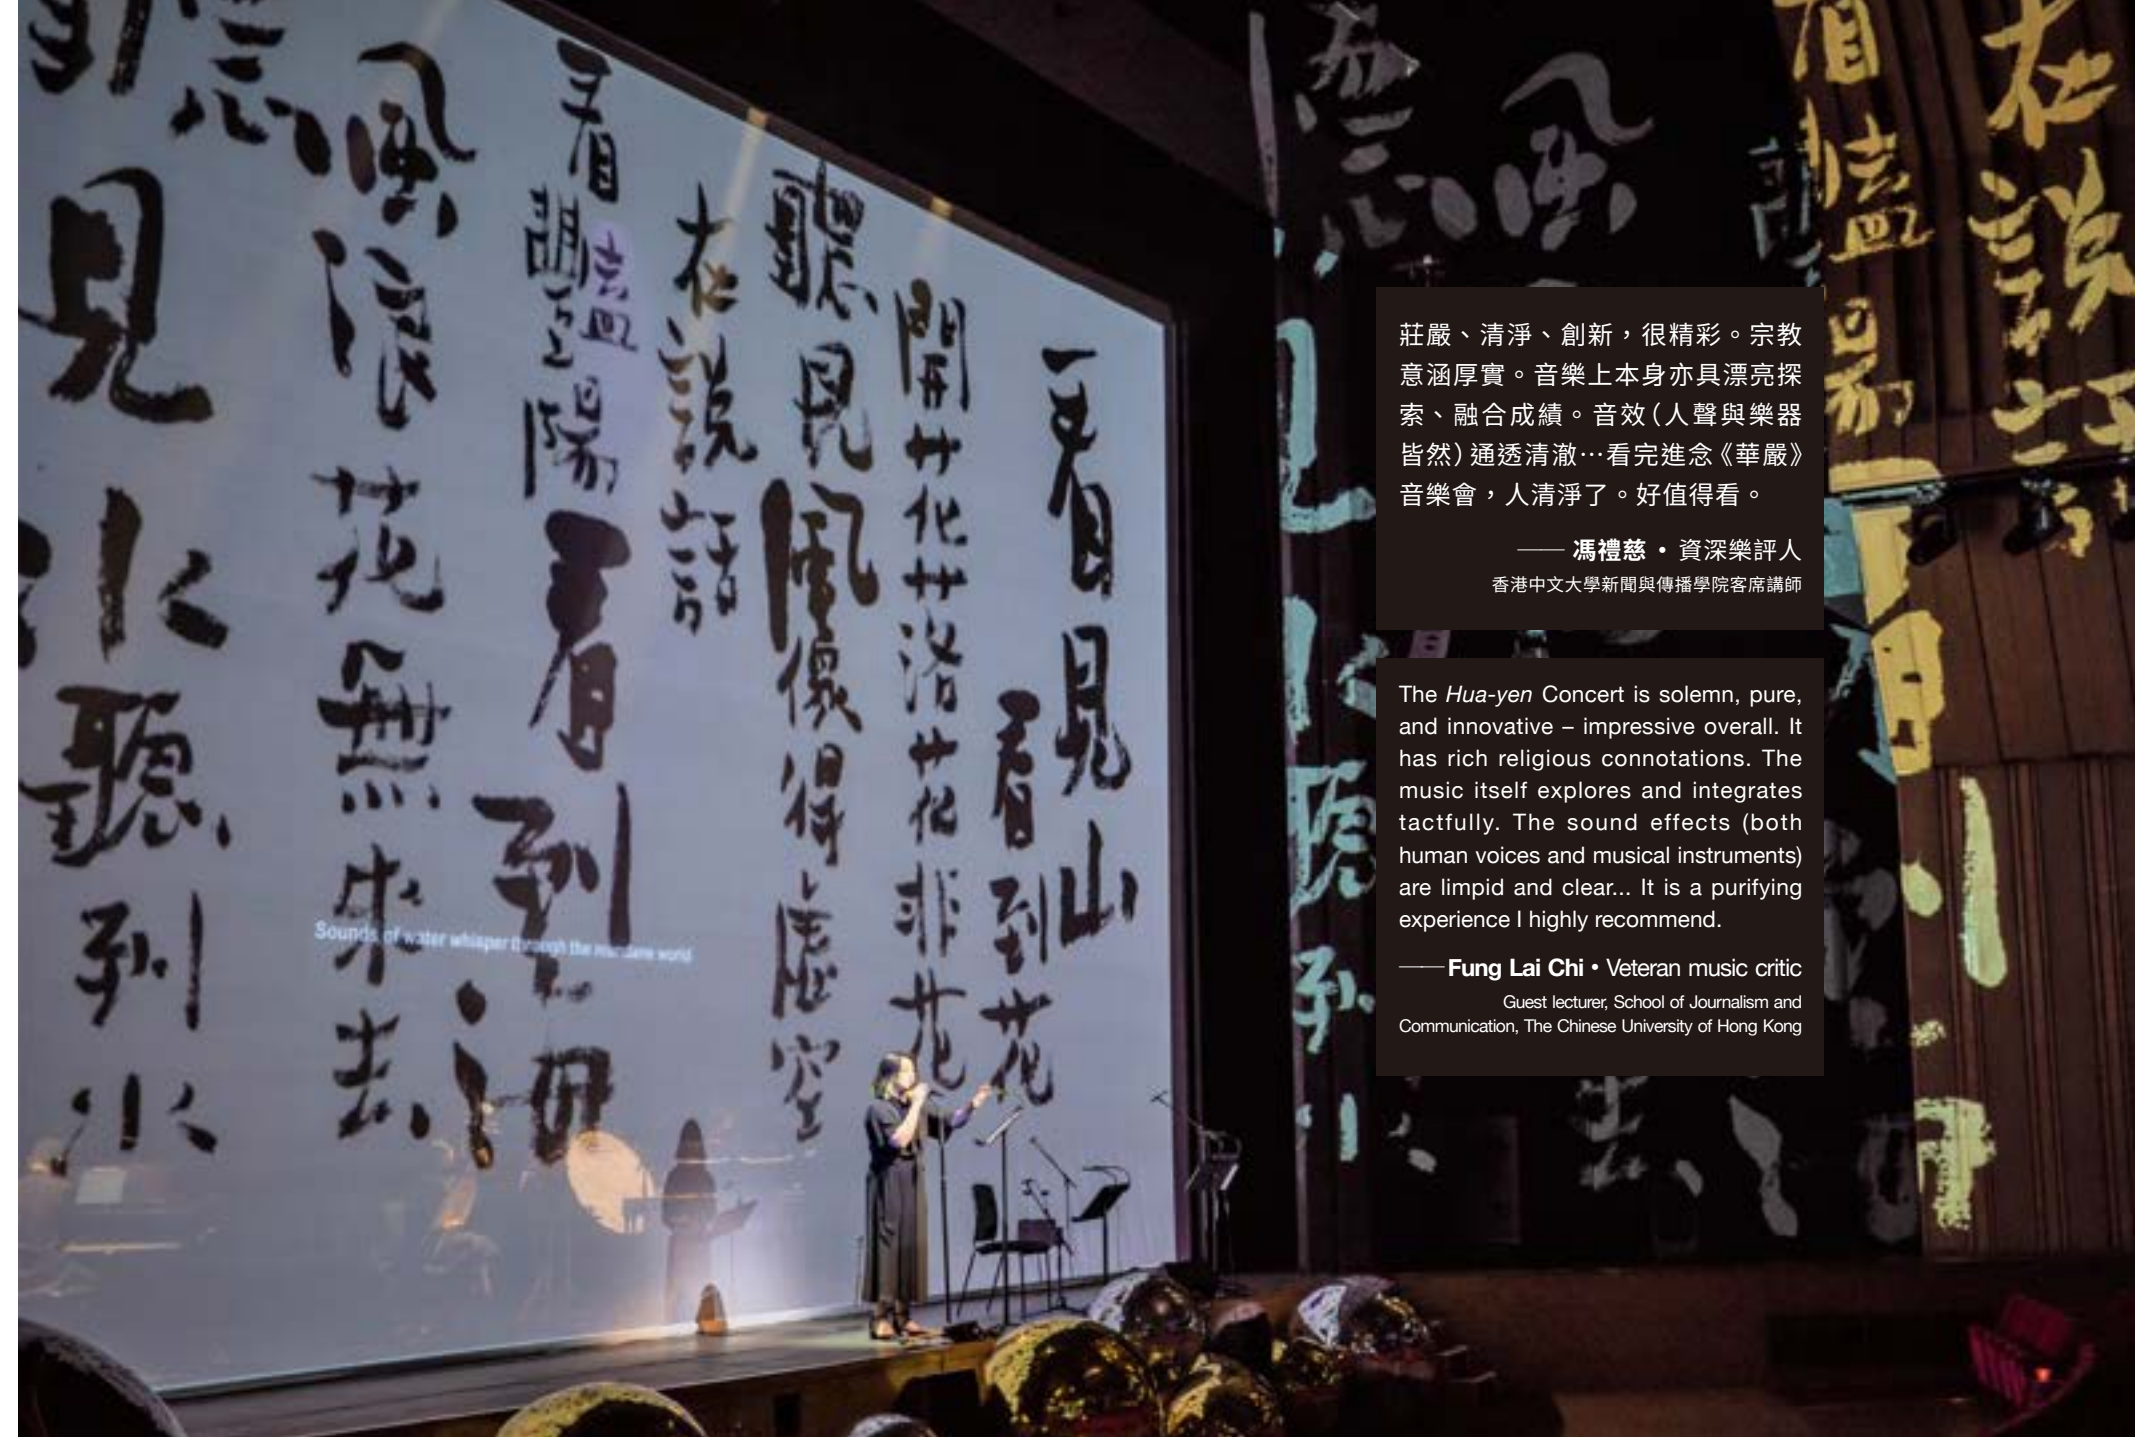 看見山
看到花
開花花落花非花
聽見風像得虛空
在說話
看
看到海
風浪花無來去
見
水聽到水
Sounds of water whisper through the mundane world
莊嚴、清淨、創新，很精彩。宗教
意涵厚實。音樂上本身亦具漂亮探
索、融合成績。音效（人聲與樂器
皆然）通透清澈…看完進念《華嚴》
音樂會，人清淨了。好值得看。
—— 馮禮慈 • 資深樂評人
香港中文大學新聞與傳播學院客席講師
The Hua-yen Concert is solemn, pure,
and innovative – impressive overall. It
has rich religious connotations. The
music itself explores and integrates
tactfully. The sound effects (both
human voices and musical instruments)
are limpid and clear... It is a purifying
experience I highly recommend.
——Fung Lai Chi • Veteran music critic
Guest lecturer, School of Journalism and
Communication, The Chinese University of Hong Kong